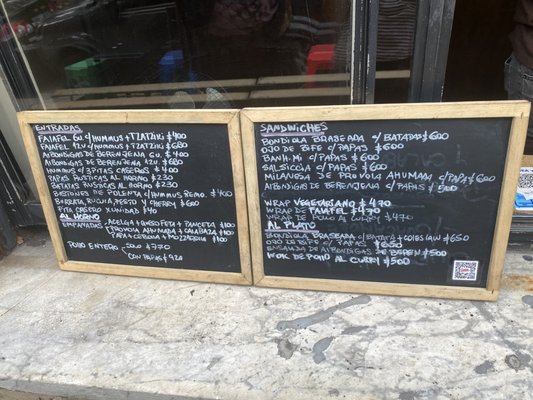 ENTRADAS
FALAFEL 6U. C/HUMMUS + TZATZIKI $400
FALAFEL 12U C/HUMMUS + TZATZIKI $680
ALBONDIGAS DE BERENJENA 6U. $400
ALBONDIGAS DE BERENJENA 12U $680
HUMMUS C/3 PITAS CASEROS $400
PAPAS RUSTICAS AL HORNO $230
BATATAS RUSTICAS AL HORNO $230
BASTONES DE POLENTA C/HUMMUS REMO. $400
BURRATA, RUCULA, PESTO Y CHERRY $600
PITA CASERO X UNIDAD $40
AL HORNO
EMPANADAS ACELGA + ROQUEFORT + PANCETA $100
PROVOLA AHUMADA + CALABAZA $100
PAPA + CEBOLLA + MOZZARELLA $100
POLLO ENTERO SOLO $770
CON PAPAS $920
SANDWICHES
BONDIOLA BRASEADA C/BATATAS $600
OJO DE BIFE C/PAPAS $600
BANH-MI C/PAPAS $600
SALSICCIA C/PAPAS $600
MILANESA DE PROVOLA AHUMADA C/PAPAS $600
ALBONDIGAS DE BERENJENA C/PAPAS $500
WRAP VEGETARIANO $470
WRAP DE FALAFEL $470
WRAP DE POLLO AL CURRY $470
AL PLATO
BONDIOLA BRASEADA C/BATATA + COLESLAW $650
OJO DE BIFE C/PAPAS $650
ENSALADA DE ALBONDIGAS DE BEREN $500
WOK DE POLLO AL CURRY $500